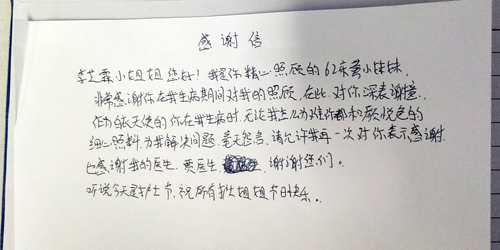 感谢信
李芝霖小姐姐您好！我是你精心照顾的62床黄小妹妹,
非常感谢你在我生病期间对我的照顾,在此,对你深表谢意.
作为白衣天使的你在我生病时,无论我怎么为难你都和颜悦色的
细心照料,为我解决问题,毫无怨言,请允许我再一次对你表示感谢.
也感谢我的医生,贾医生 谢谢您们。
听说今天是护士节,祝所有护士姐姐节日快乐。